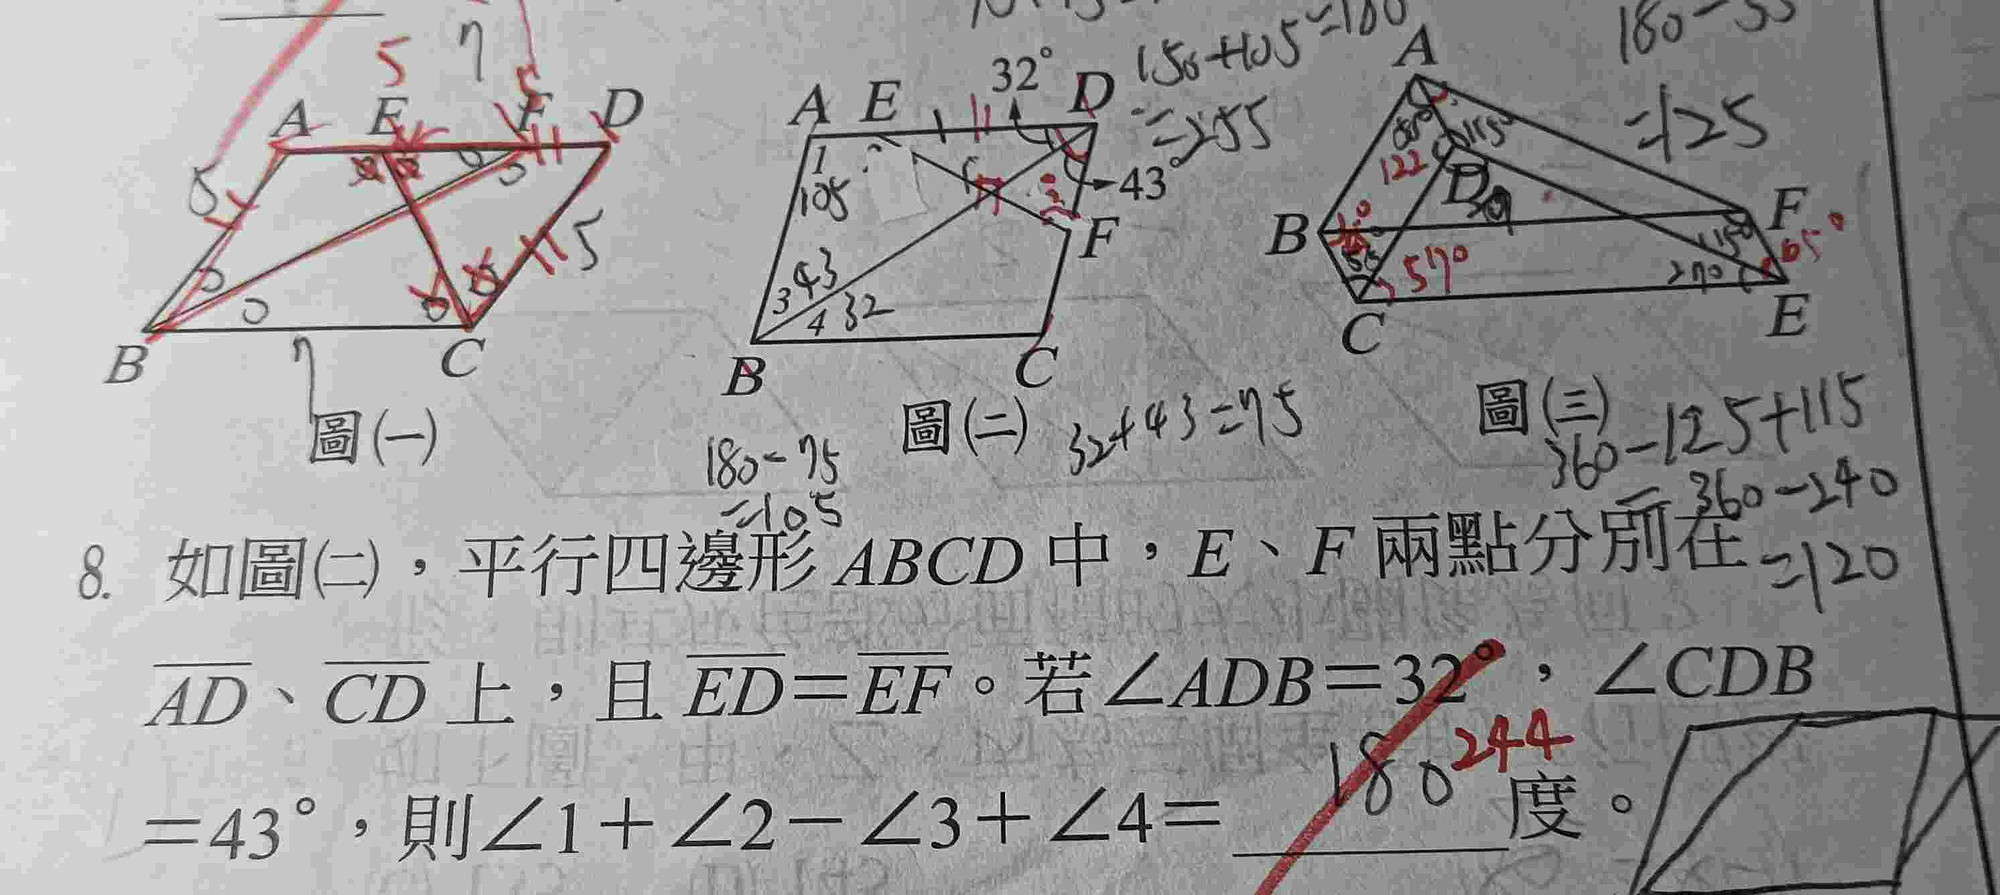 5 7 5
A E F D
5
5
B C
7
圖(一)
A E 32° D
1
105
43°
F
3 43
4 32
B C
圖(二)
32+43=75
180-75
=105
150+105=180
=255
180-55
=125
A
115°
122
D
B F
115°
65°
55 57°
C E
圖(三)
360-125+115
=360-240
=120
8. 如圖(二),平行四邊形 ABCD 中,E、F 兩點分別在
AD、CD 上,且 ED=EF。若∠ADB=32°,∠CDB
=43°,則∠1+∠2-∠3+∠4= 180 244 度。